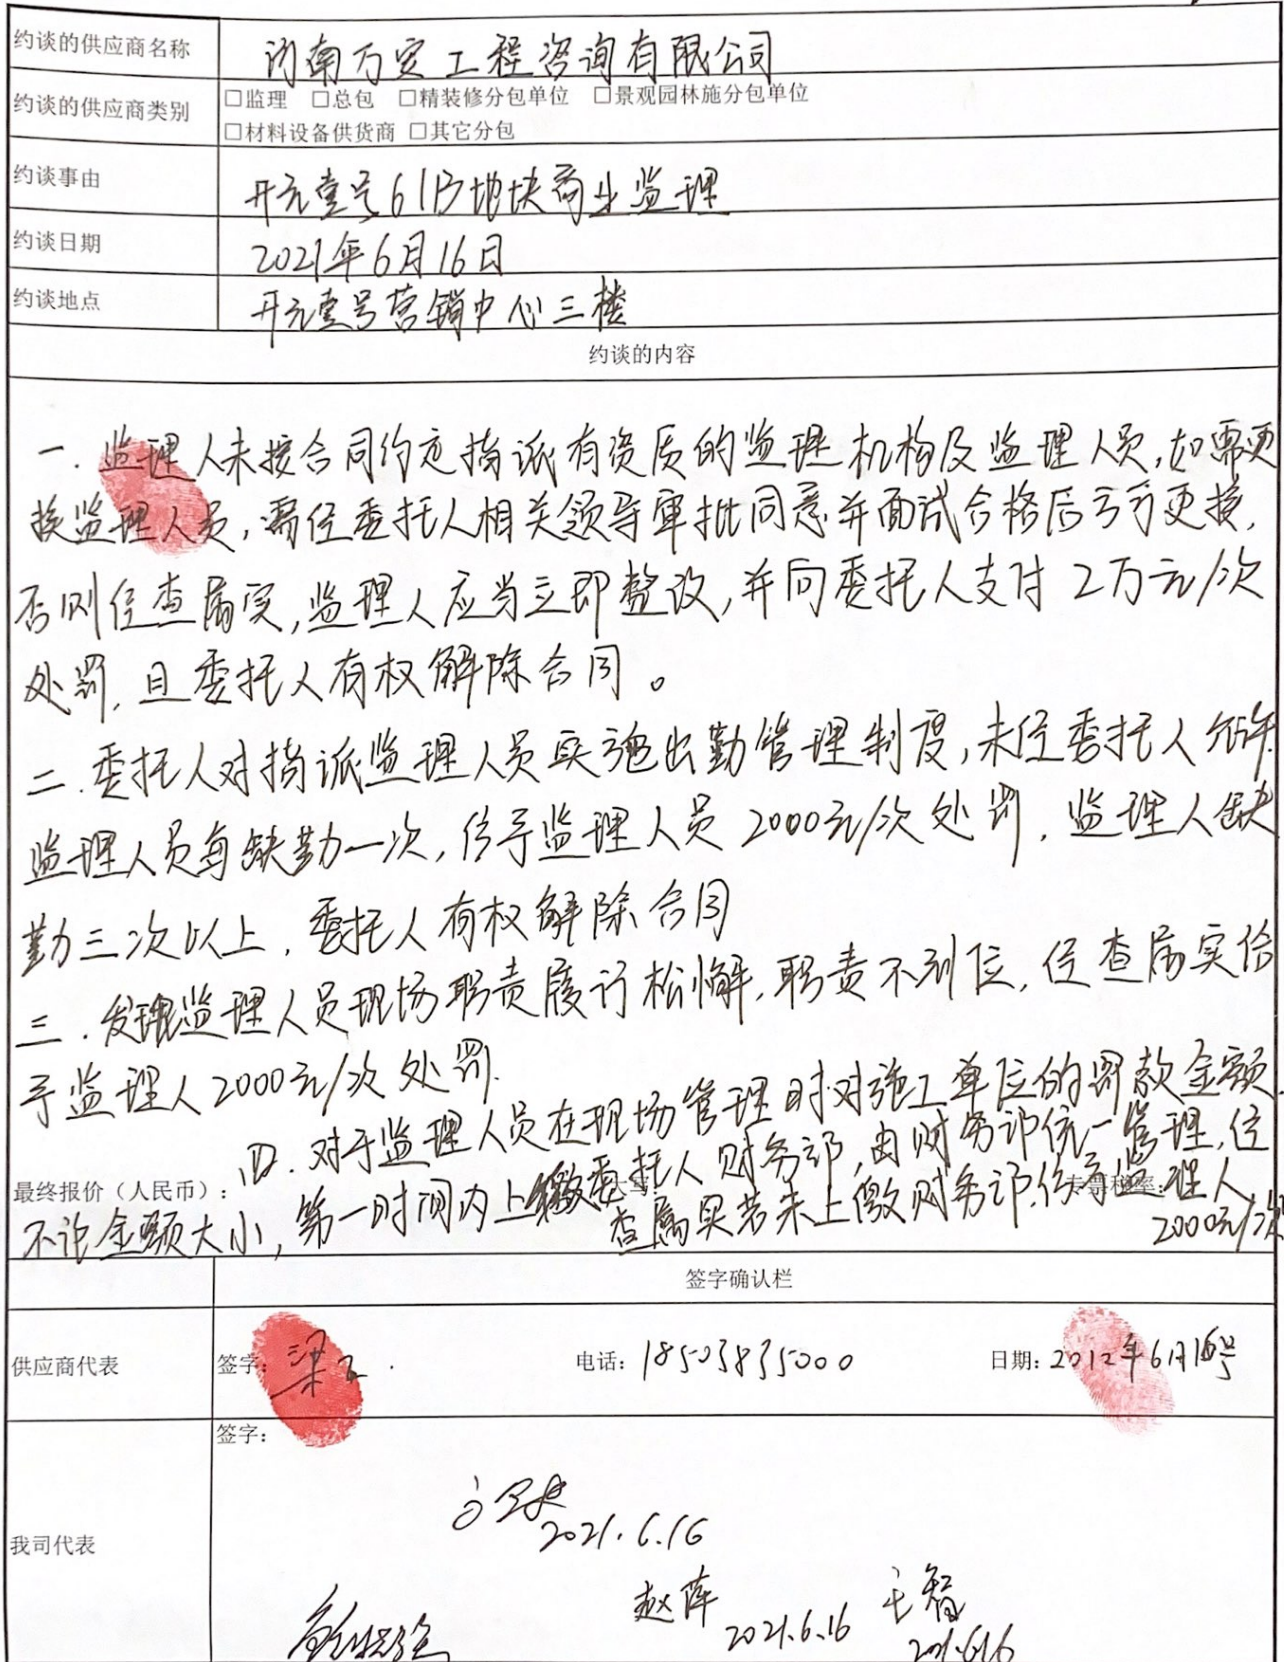 约谈的供应商名称 河南万安工程咨询有限公司
约谈的供应商类别 □监理 □总包 □精装修分包单位 □景观园林施分包单位
□材料设备供货商 □其它分包
约谈事由 开元壹号61B地块商业监理
约谈日期 2021年6月16日
约谈地点 开元壹号营销中心三楼
约谈的内容
一.监理人未按合同约定指派有资质的监理机构及监理人员,如需更
换监理人员,需经委托人相关领导审批同意并面试合格后方可更换,
否则经查属实,监理人应当立即整改,并向委托人支付2万元/次
处罚,且委托人有权解除合同。
二.委托人对指派监理人员实施出勤管理制度,未经委托人允许
监理人员每缺勤一次,给予监理人员2000元/次处罚,监理人缺
勤三次以上,委托人有权解除合同
三.发现监理人员现场职责履行松懈,职责不到位,经查属实给
予监理人2000元/次处罚.
四.对于监理人员在现场管理时对施工单位的罚款金额.
不论金额大小,第一时间内上缴委托人财务部,由财务部统一管理,经
查属实若未上缴财务部.给予监理人
2000元/次
最终报价(人民币):
签字确认栏
供应商代表 签字: 梁 电话:18503835000 日期:2012年6月16号
我司代表 签字:
2021.6.16
赵萍 2021.6.16 王智
2021.6.16